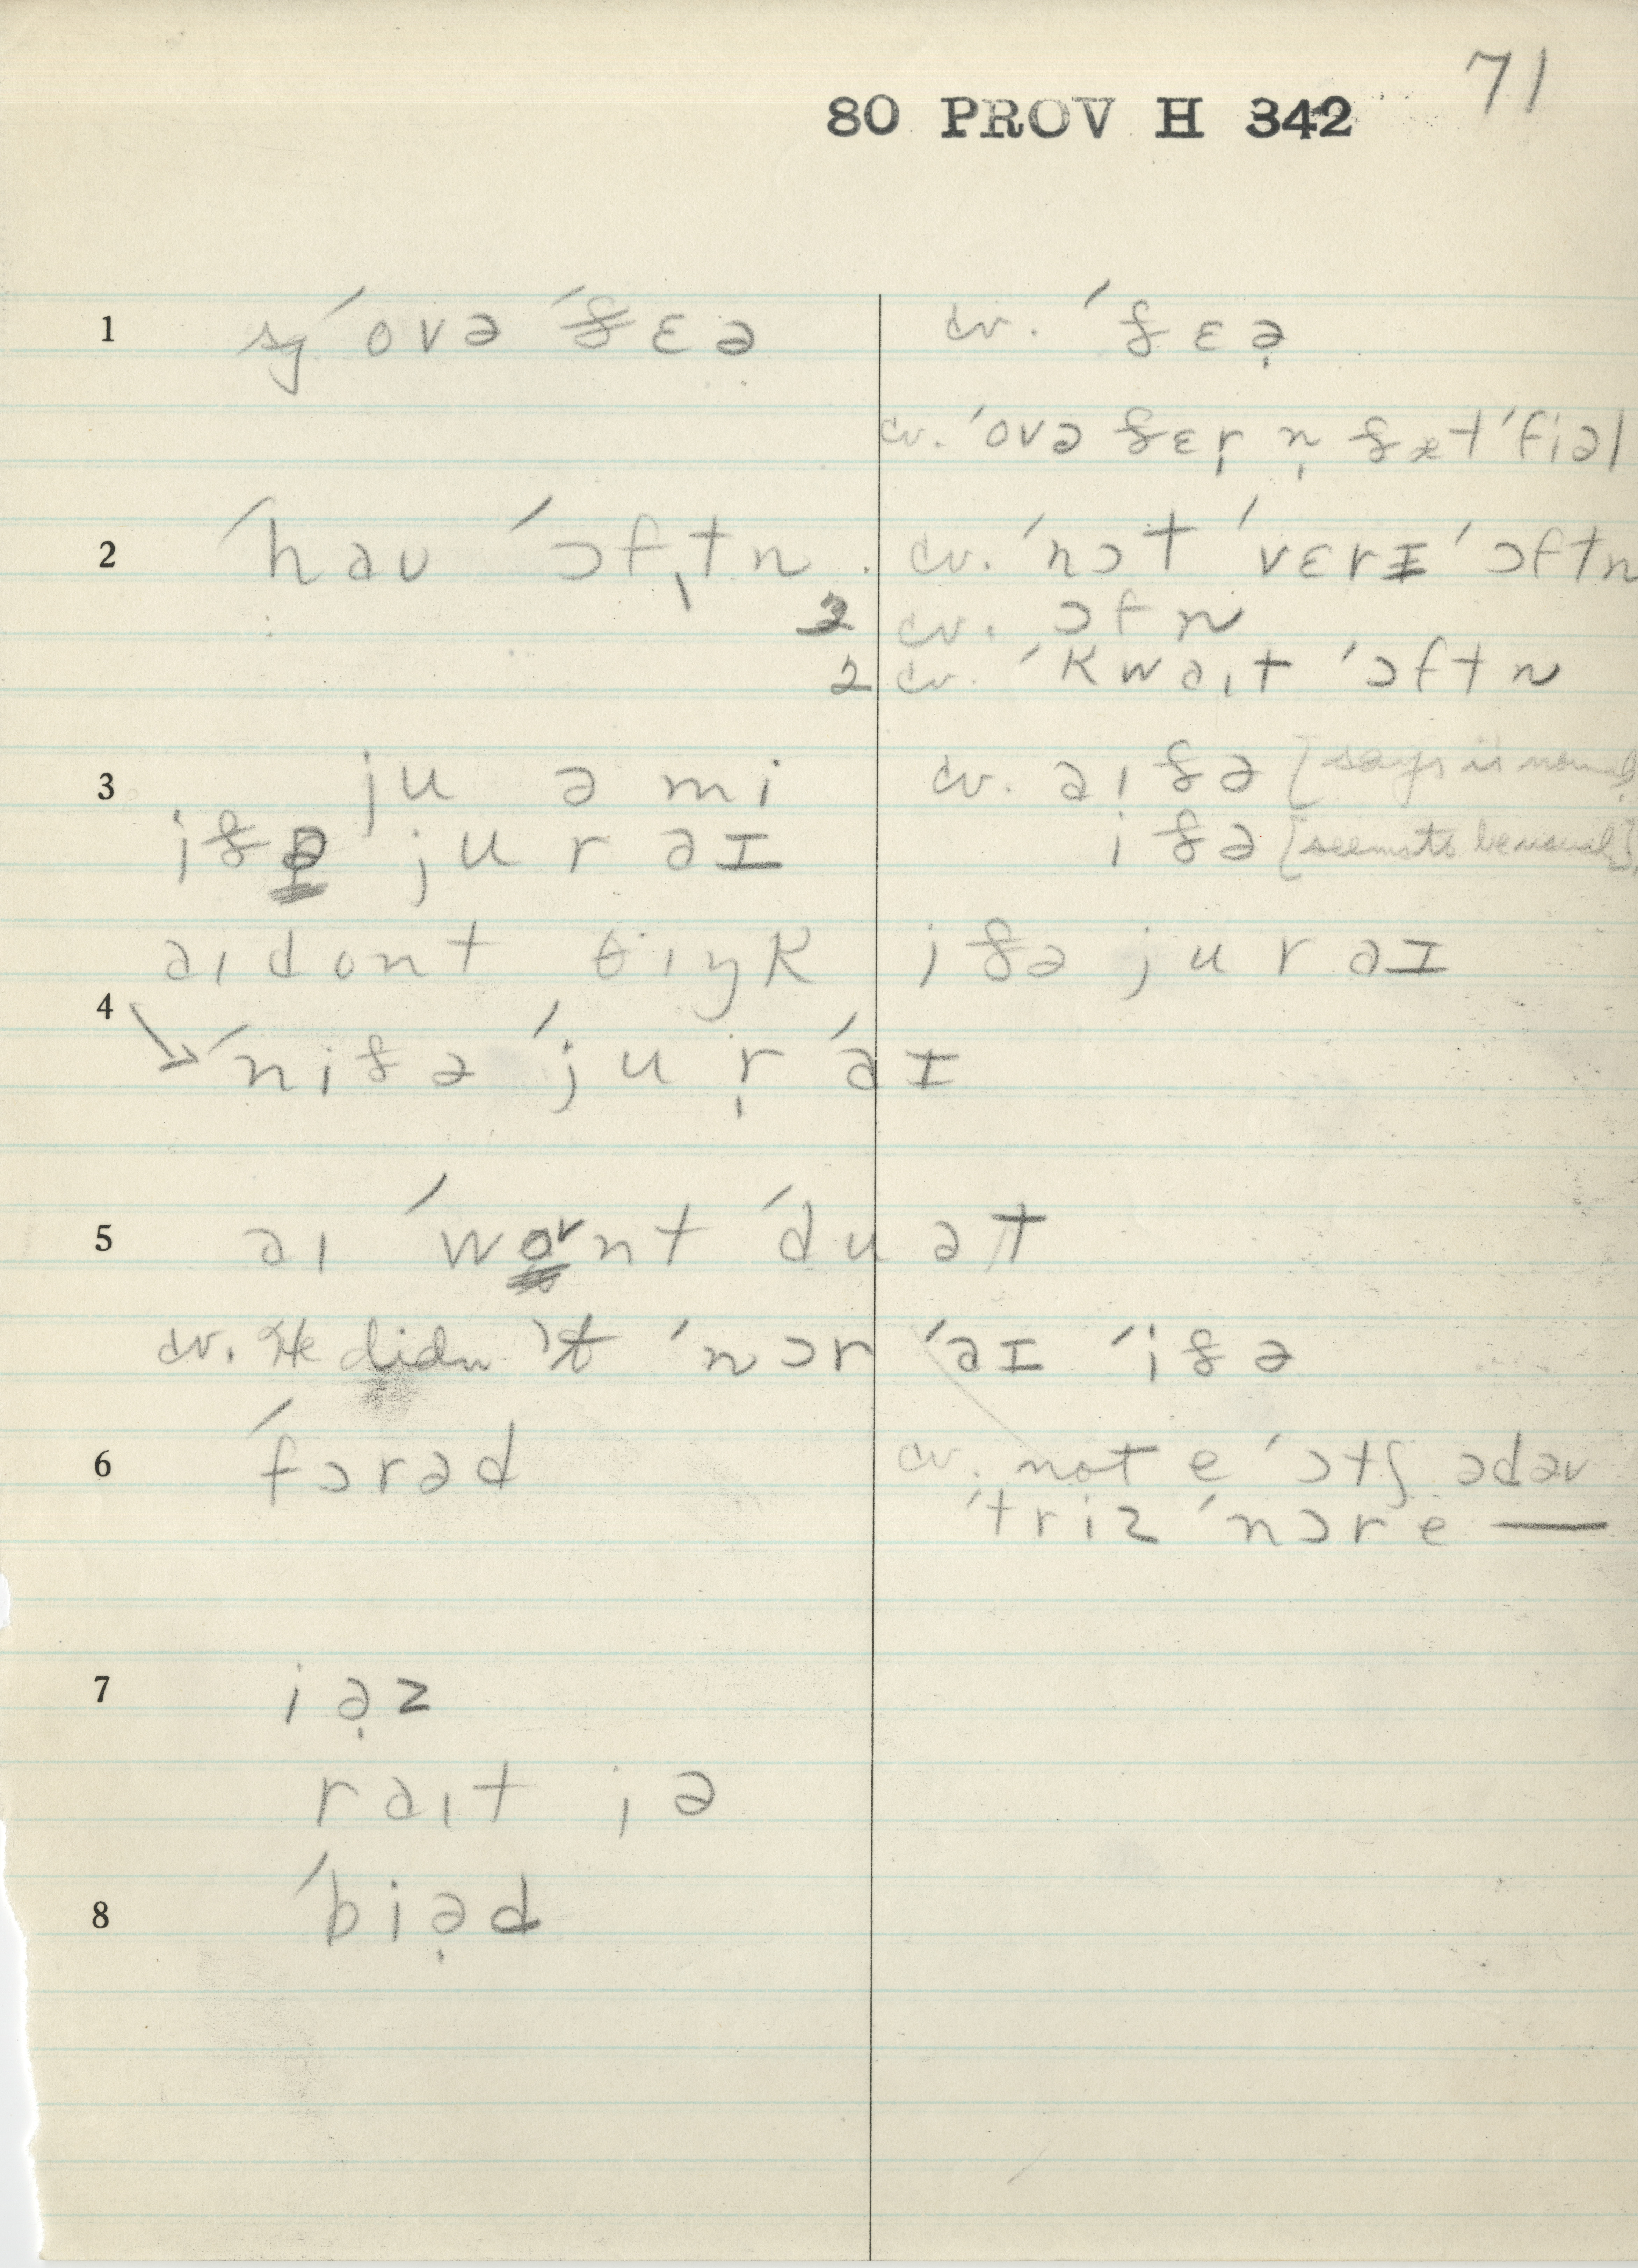 71
80 PROV H 342
1 sg ´ovə ´ðɛə cv. ´ðɛə̣
cv. ´ovə ðɛṛ ṇ ðæt ´fiəl
2 ´haʊ ´ɔfˌtn cv. ´nɔt ´vɛrɪ ´ɔftn
3 cv. ɔfn
2 cv. ´kwaɪt ´ɔftn
3 ju ə mi cv. aɪðə [says is
iðə ju r aɪ iðə [seems to be usual]
aɪ dont θɪŋk iðə ju r aɪ
4 ´niðə ´ju ṛ ´aɪ
5 aɪ ´wont ´du ət
cv. He didn't ´nɔr ´aɪ ´iðə
6 ´fɔrəd cv. not e ´ɔtʃəd əv
´triz ´nɔr e —
7 iə̣z
raɪt iə
8 ´biə̣d